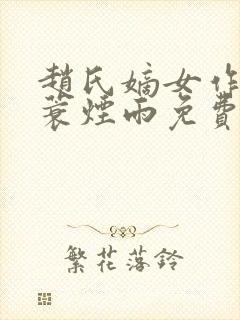 趙氏嫡女作
蓑煙雨免費
繁花落鈴